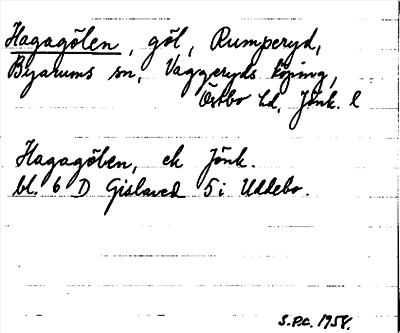 Hagagölen, göl, Rumperyd,
Byarums sn, Vaggeryds köping,
Östbo hd, Jönk. l
Hagagölen, ek Jönk.
bl. 6 D Gislaved 5 i Uddebo.
S.P.C. 1958.